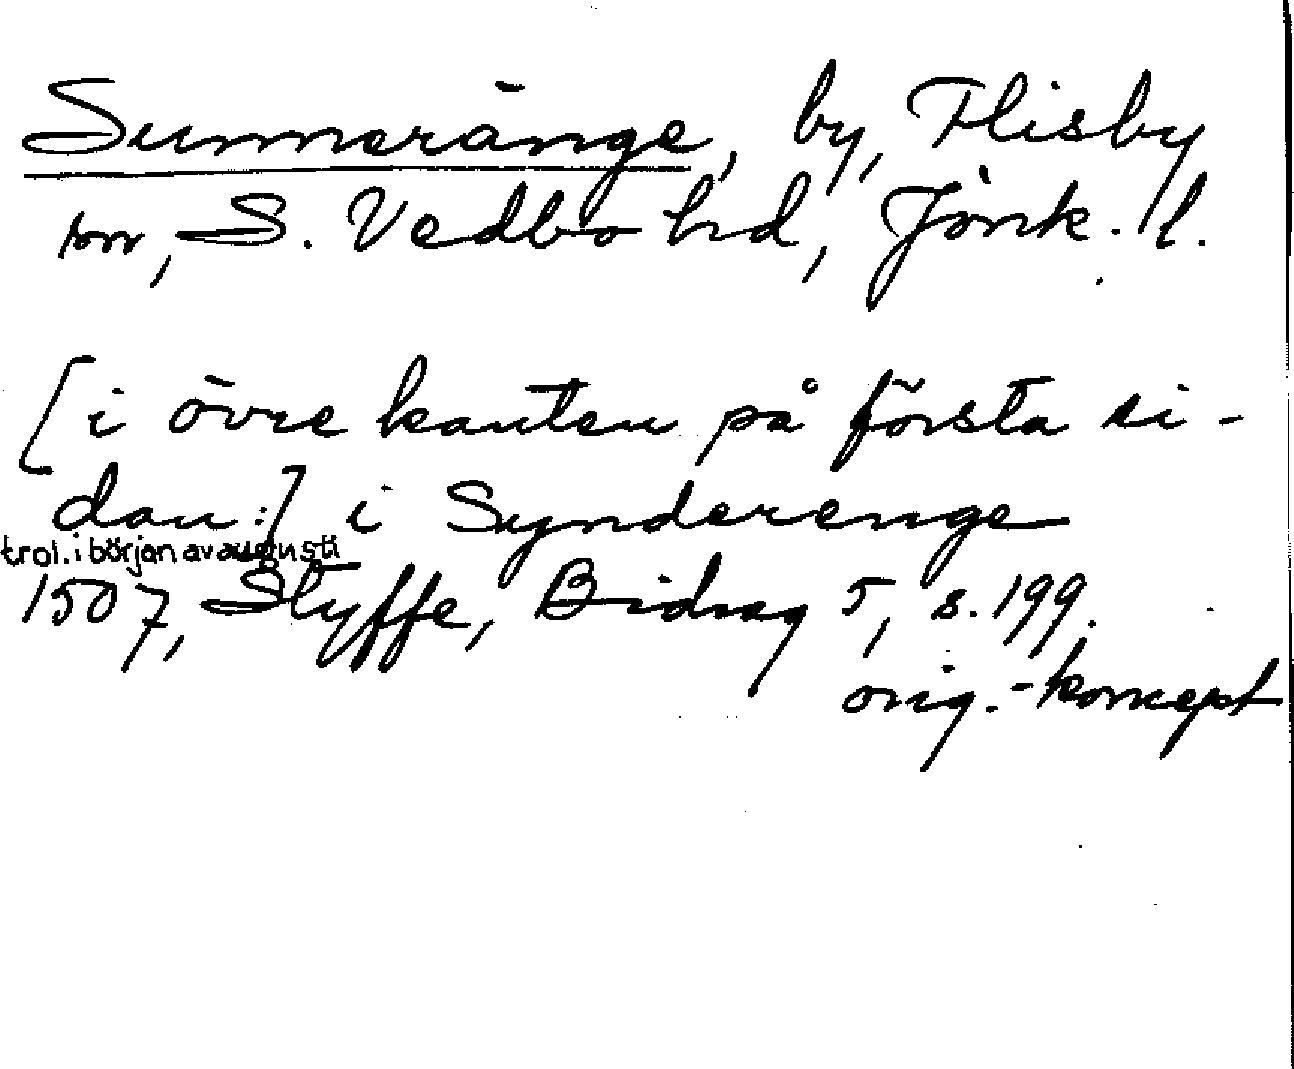 Sunneränge, by, Flisby
sn, S. Vedbo hd, Jönk. l.
[i övre kanten på första si-
dan:] i Synderenge
trol. i början av augusti
1507, Styffe, Bidrag 5, s. 199.
orig.-koncept